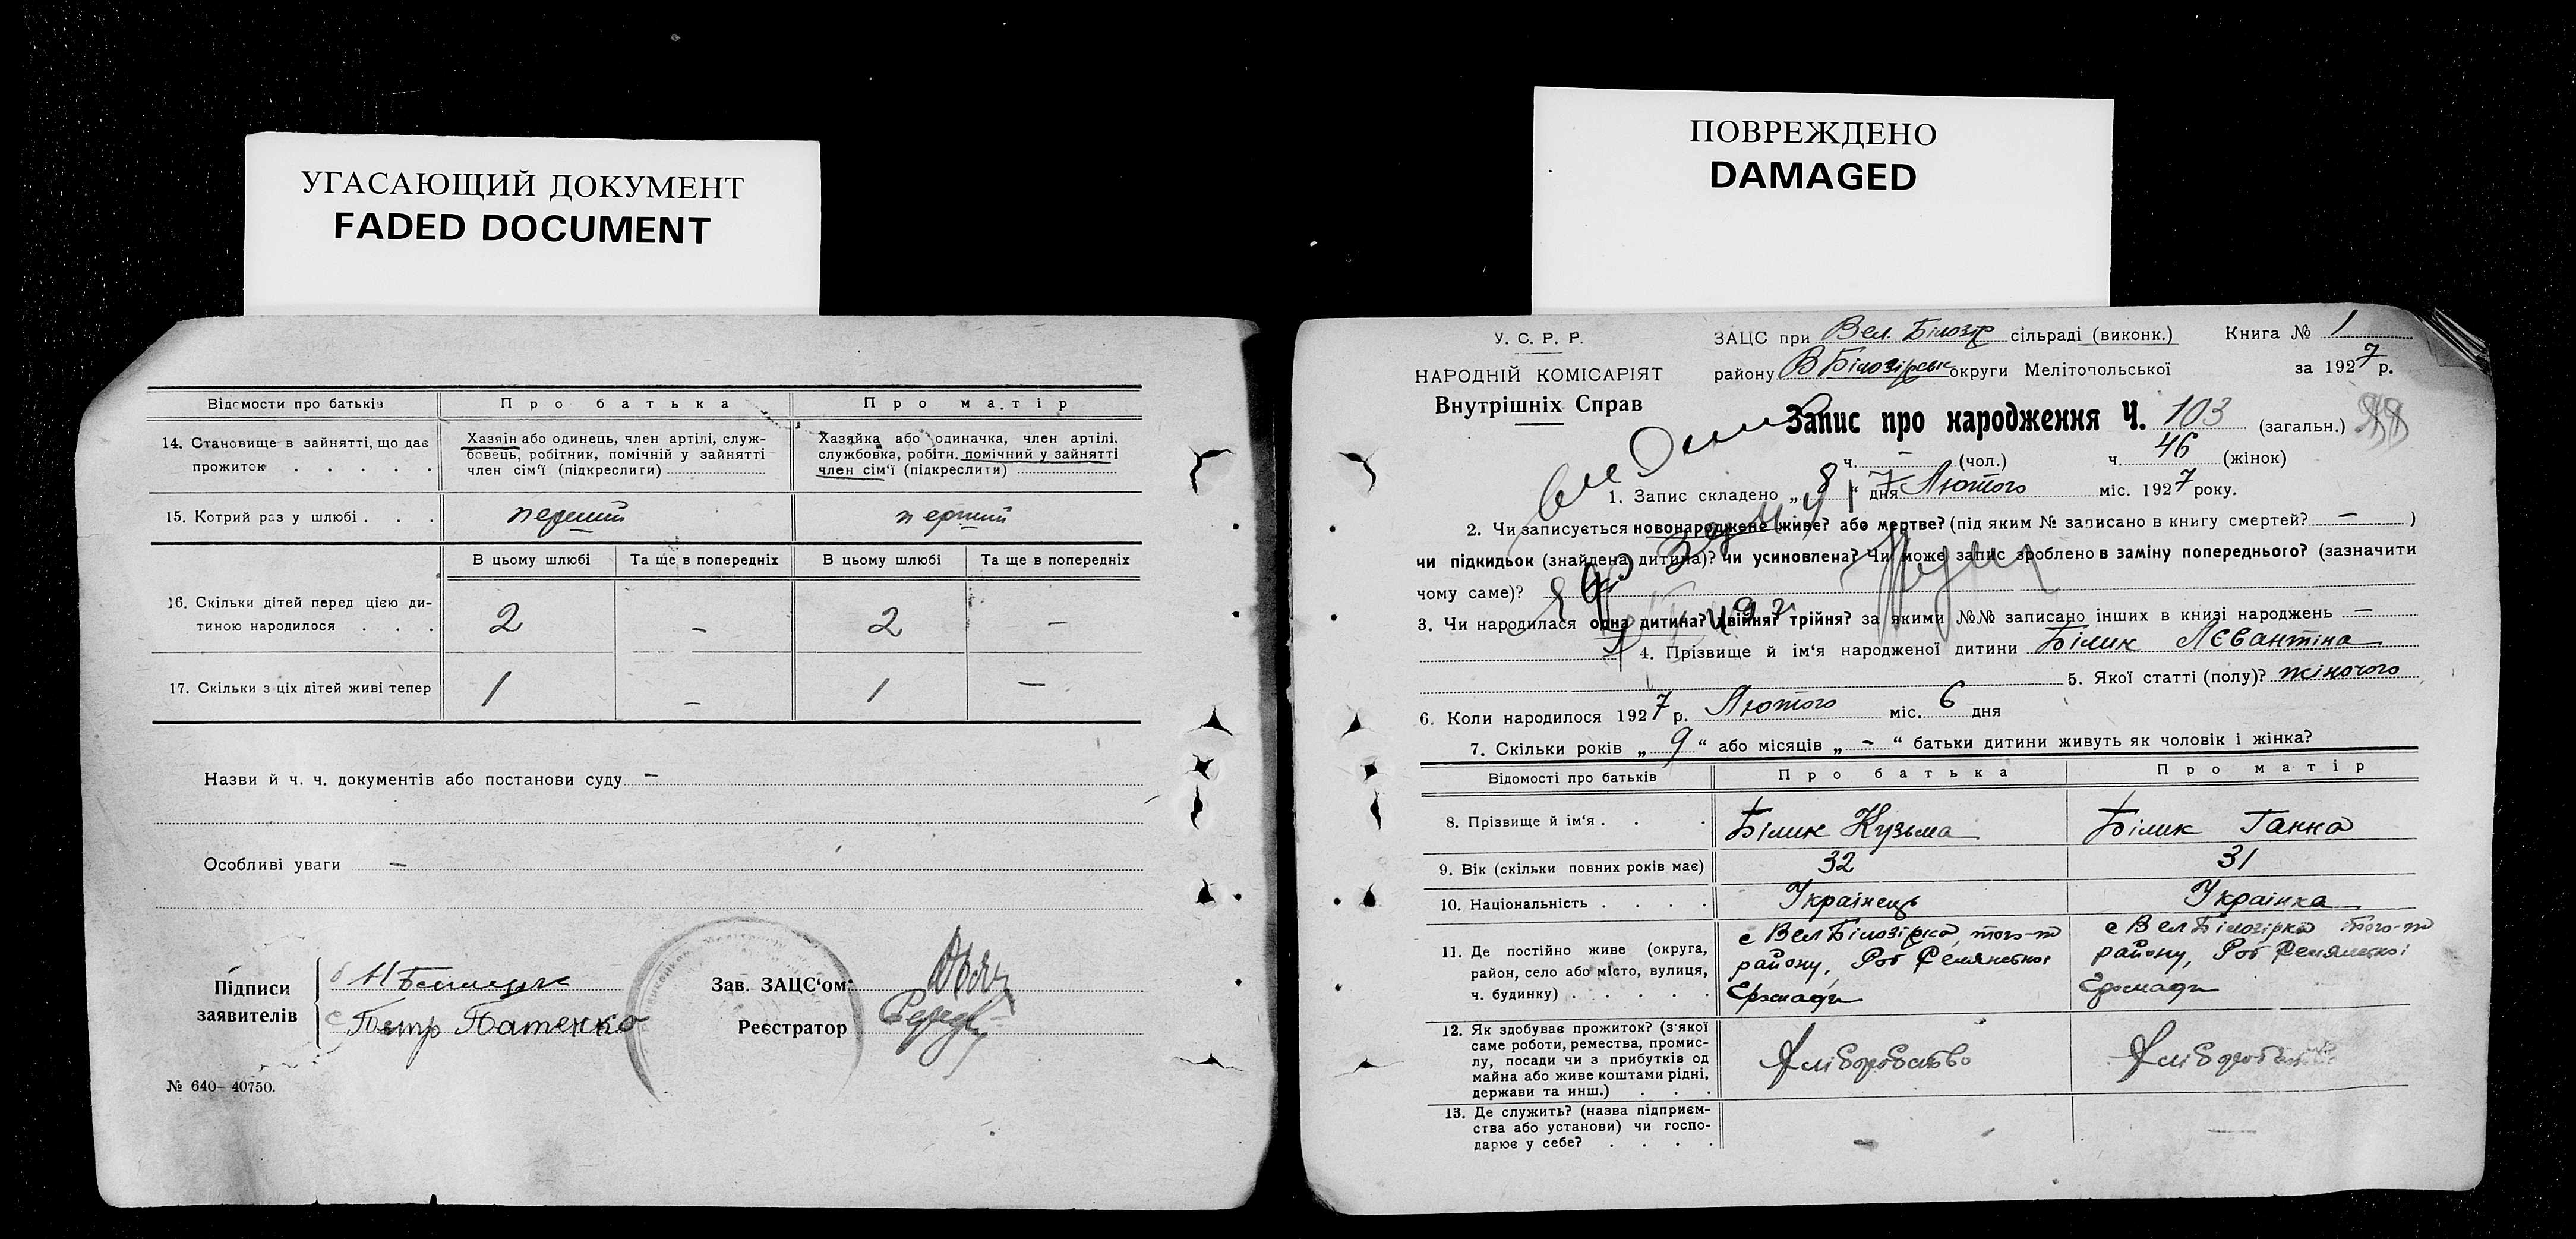 УГАСАЮЩИЙ ДОКУМЕНТ
FADED DOCUMENT
Відомости про батьків
Про батька
Про матір
14. Становище в зайнятті, що дає прожиток . . . .
Хазяїн або одинець, член артілі, служ-
бовець, робітник, помічній у зайнятті
член сім'ї (підкреслити)
Хазяйка або одиначка, член артілі,
службовка, робітн. помічний у зайнятті
член сім'ї (підкреслити)
15. Котрий раз у шлюбі . . .
перший
перший
В цьому шлюбі
Та ще в попередніх
В цьому шлюбі
Та ще в попередніх
16. Скільки дітей перед цією ди-
тиною народилося . . .
2
-
2
-
17. Скільки з ціх дітей живі тепер
1
-
1
-
Назви й ч. ч. документів або постанови суду -
Особливі уваги -
Підписи
заявителів
Петр Патенко
Зав. ЗАЦС'ом
Реєстратор
№ 640— 40750.
ПОВРЕЖДЕНО
DAMAGED
У. С. Р. Р.
НАРОДНІЙ КОМІСАРІЯТ
Внутрішніх Справ
ЗАЦС при Вел. Білозір сільраді (виконк.)
Книга № 1
району В Білозірськ округи Мелітопольської
за 1927 р.
Запис про народження Ч. 103 (загальн.)
ч. - (чол.) ч. 46 (жінок)
1. Запис складено „ 8 “ дня Лютого міс. 1927 року.
2. Чи записується новонароджене живе? або мертве? (під яким № записано в книгу смертей? - )
чи підкидьок (знайдена дитина)? чи усиновлена? Чи може запис зроблено в заміну попереднього? (зазначити
чому саме)?
3. Чи народилася одна дитина? двійня? трійня? за якими №№ записано інших в книзі народжень -
4. Прізвище й ім'я народженої дитини Білик Лєвантіна
5. Якої статті (полу)? жіночого
6. Коли народилося 1927 р. Лютого міс. 6 дня
7. Скільки років „ 9 “ або місяців „ - “ батьки дитини живуть як чоловік і жінка?
Відомості про батьків
Про батька
Про матір
8. Прізвище й ім'я . . .
Білик Кузьма
Білик Ганна
9. Вік (скільки повних років має)
32
31
10. Національність . . . .
Українець
Українка
11. Де постійно живе (округа,
район, село або місто, вулиця,
ч. будинку) . . . . .
с Вел Білозірка, того-ж
району,
с Вел Білозірка того-ж
району,
12. Як здобуває прожиток? (з якої
саме роботи, ремества, промис-
лу, посади чи з прибутків од
майна або живе коштами рідні,
держави та инш.) . . .
Хліборобство
13. Де служить? (назва підприєм-
ства або установи) чи госпо-
дарює у себе? . . . .
-
-